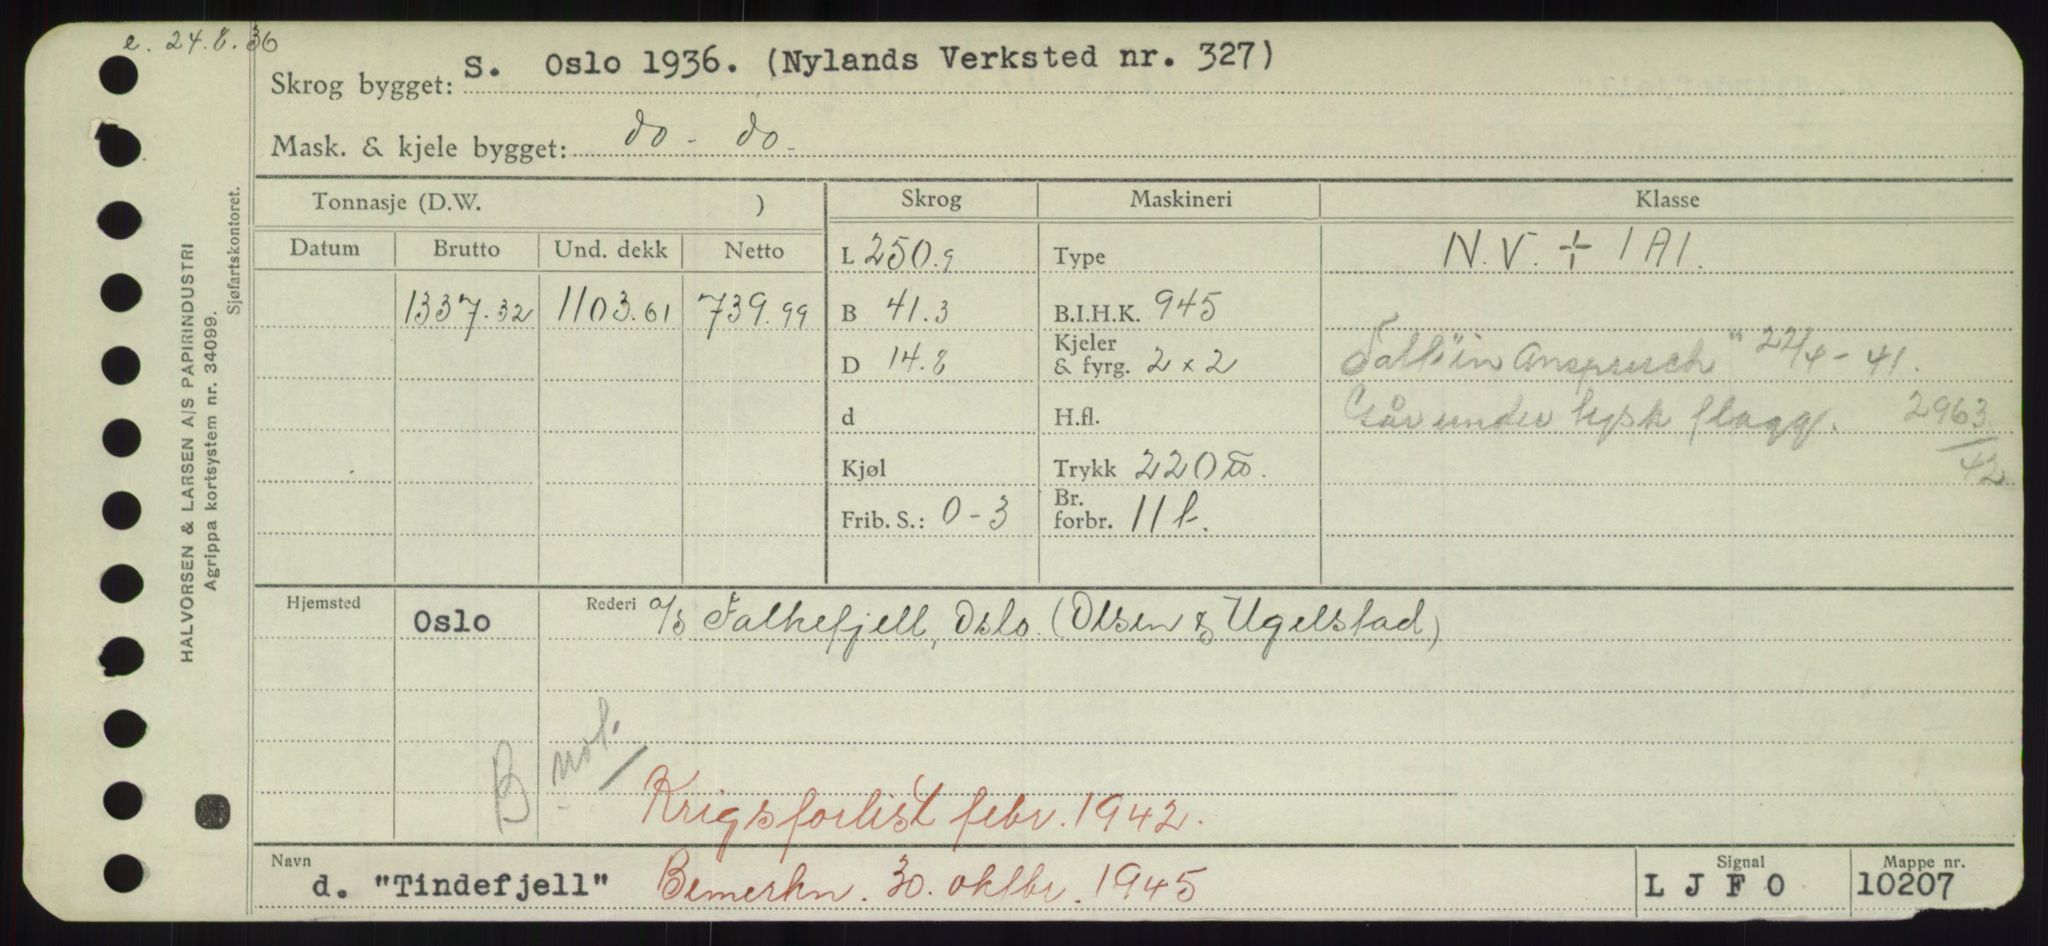 e. 24.8.36
Skrog bygget: S. Oslo 1936. (Nylands Verksted nr. 327)
Mask. & kjele bygget: do - do -
HALVORSEN & LARSEN A/S PAPIRINDUSTRI
Agrippa kortsystem nr. 34099.
Sjøfartskontoret.
Tonnasje (D.W. ) Skrog Maskineri Klasse
Datum Brutto Und. dekk Netto L 250.9 Type N.V. + 1A1.
1337.32 1103.61 739.99 B 41.3 B.I.H.K. 945
D 14.8 Kjeler & fyrg. 2 x 2 "in Anspruch" 22/4-41.
d H.fl. Går under tysk flagg. 2963/42
Kjøl Trykk 220 lb.
Frib. S.: 0-3 Br. forbr. 11 t.
Hjemsted Oslo Rederi a/s Falkefjell, Oslo. (Olsen & Ugelstad)
B not.
Krigsforlist febr. 1942.
Navn d. "Tindefjell" Bemerkn. 30. oktbr. 1945 Signal L J F O Mappe nr. 10207